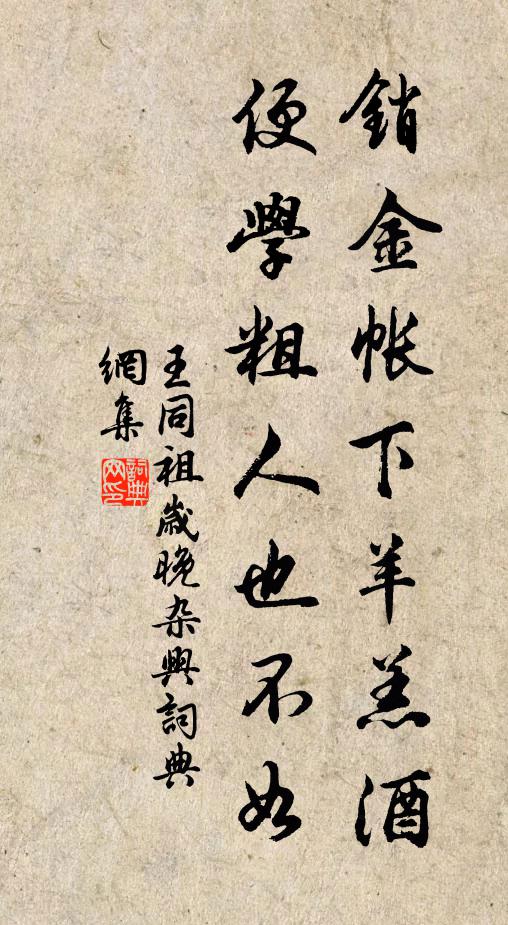 銷金帳下羊羔酒
便學粗人也不如
王同祖歲晚杂興詞典
網集
詞典
网印